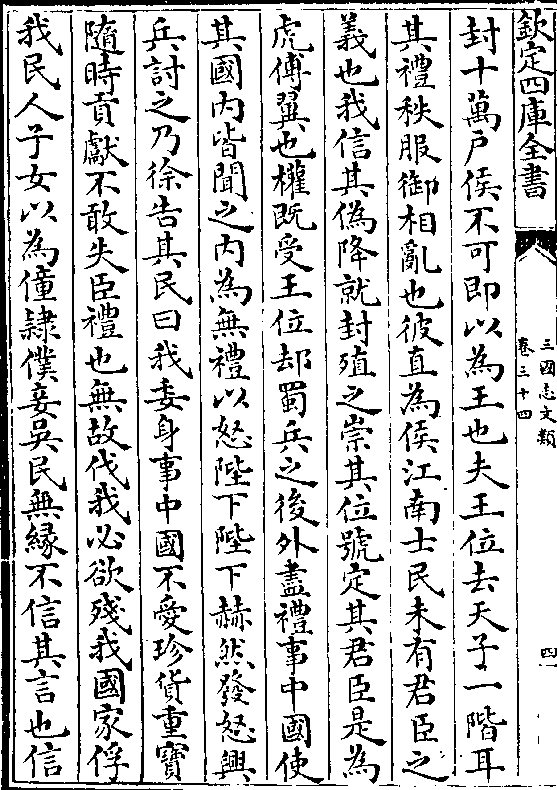 欽定四庫全書
三國志文類
卷三十四
四
封十萬户侯不可即以為王也夫王位去天子一階耳
其禮秩服御相亂也彼直為侯江南士民未有君臣之
義也我信其偽降就封殖之崇其位號定其君臣是為
虎傅翼也權既受王位却蜀兵之後外盡禮事中國使
其國内皆聞之内為無禮以怒陛下陛下赫然發怒興
兵討之乃徐告其民曰我委身事中國不愛珍貨重寳
隨時貢獻不敢失臣禮也無故伐我必欲殘我國家俘
我民人子女以為僮隸僕妾吳民無緣不信其言也信